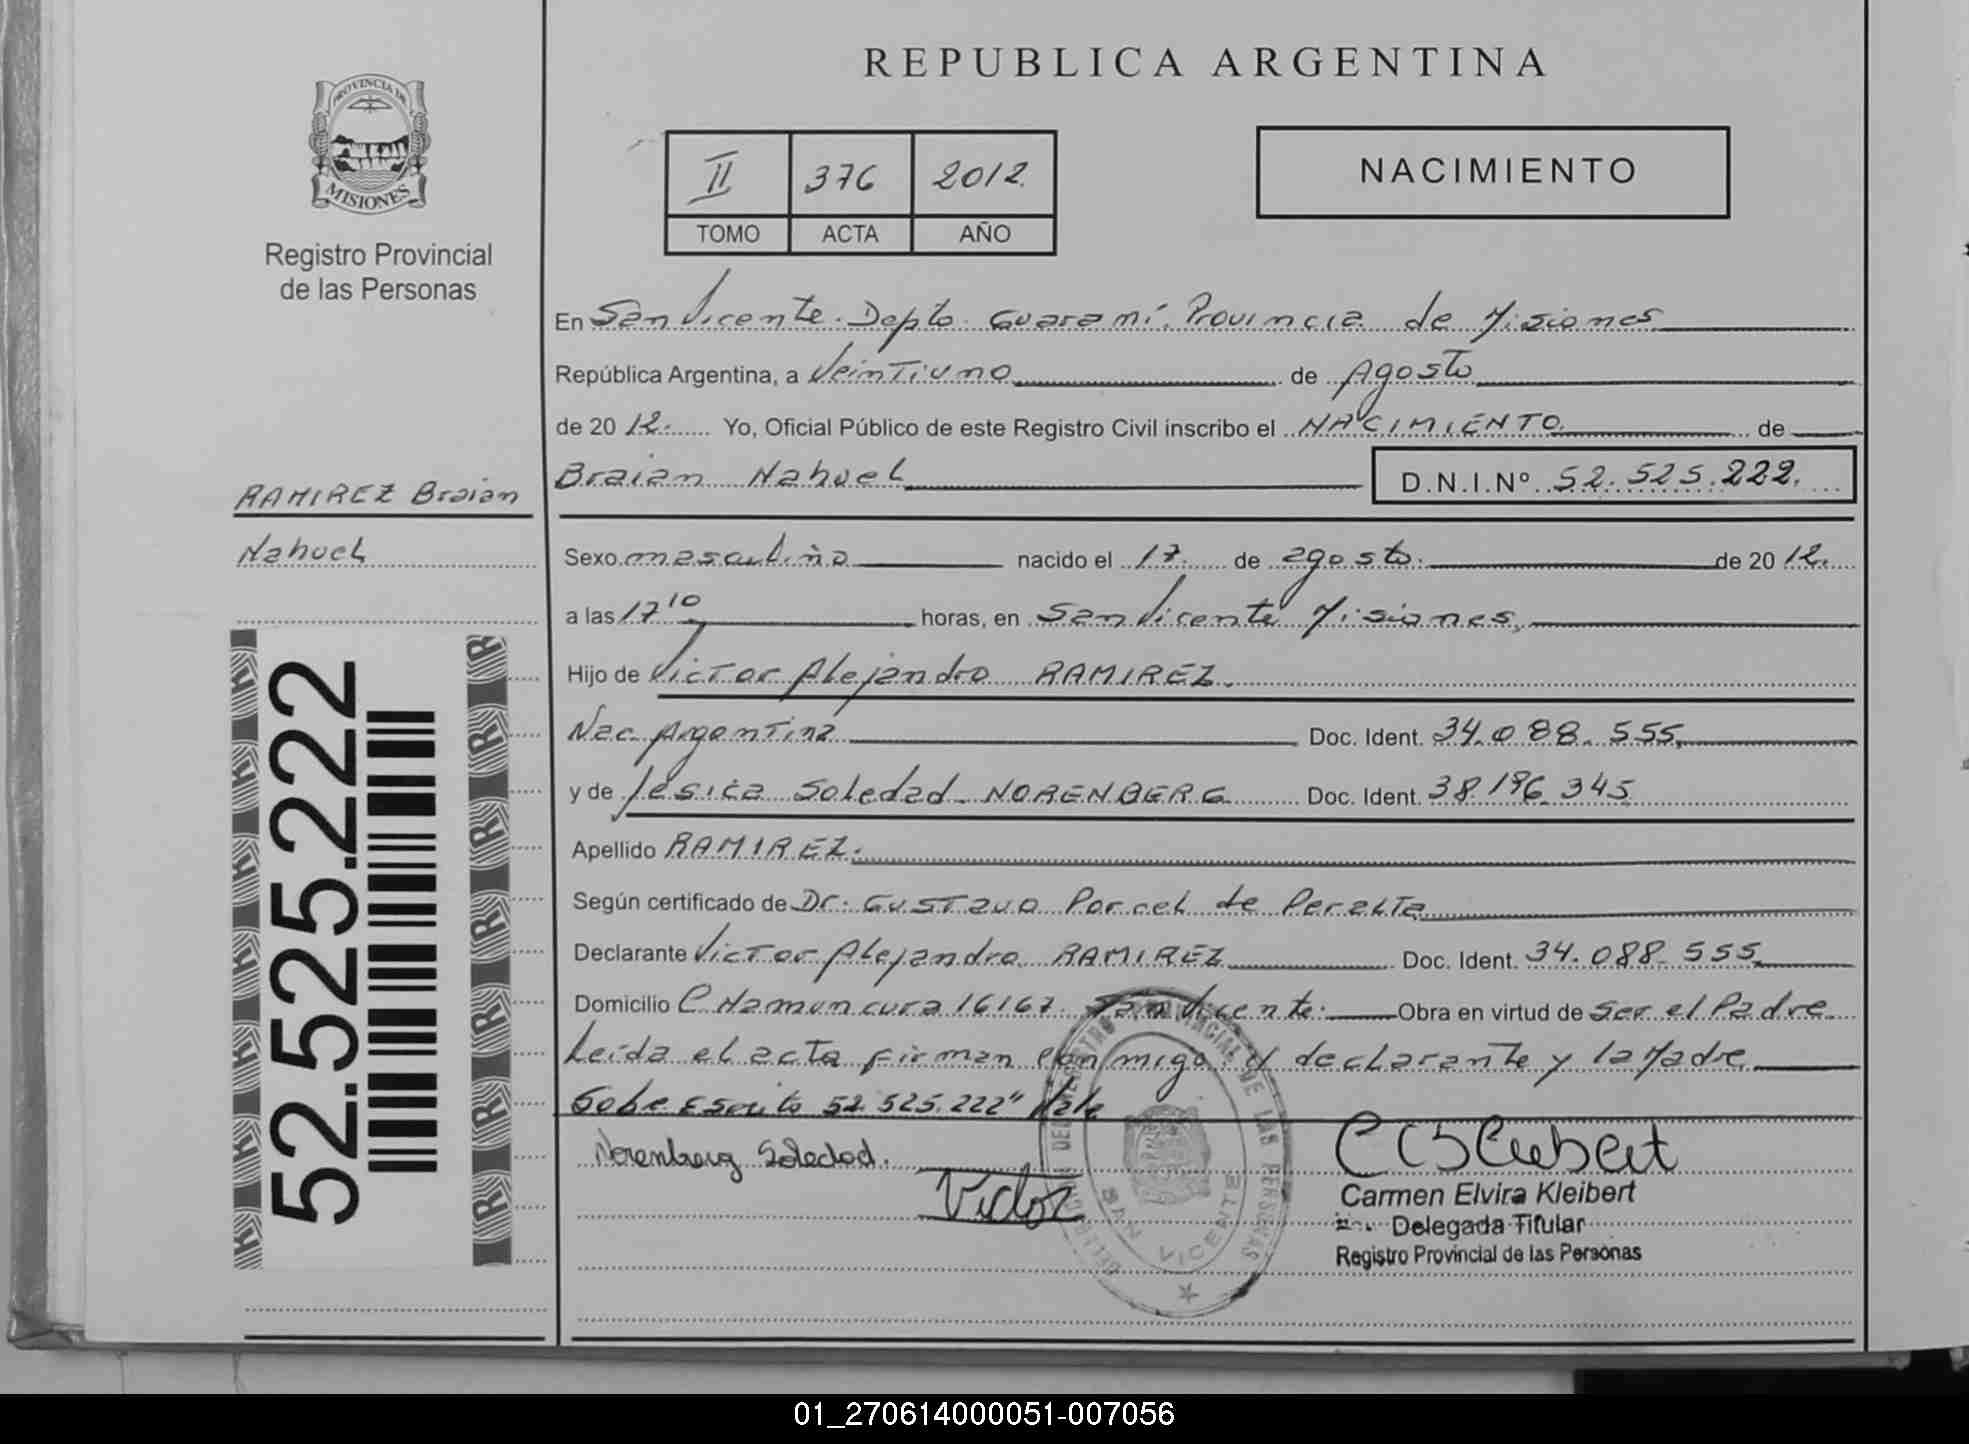 REPUBLICA ARGENTINA
PROVINCIA DE
MISIONES
Registro Provincial
de las Personas
II 376 2012
TOMO ACTA AÑO
NACIMIENTO
En San Vicente. Depto. Guaraní. Provincia de Misiones
República Argentina, a Veintiuno de Agosto
de 2012. Yo, Oficial Público de este Registro Civil inscribo el NACIMIENTO. de
Braian Nahuel D.N.I.Nº 52.525.222.
RAMIREZ Braian
Nahuel
Sexo masculino nacido el 17 de agosto. de 2012.
a las 17 10 horas, en San Vicente Misiones,
Hijo de Victor Alejandro RAMIREZ.
Nac. Argentina Doc. Ident. 34.088.555
y de Jesica Soledad NORENBERG Doc. Ident. 38.196.345
Apellido RAMIREZ.
Según certificado de Dr. Gustavo Porcel de Peralta
Declarante Victor Alejandro RAMIREZ Doc. Ident. 34.088.555
Domicilio C. Namuncura 16167. San Vicente. Obra en virtud de Ser el Padre
Leida el acta firman conmigo. y declarante y la Madre
Sobre Escrito 52.525.222" Vale
Norenberg Soledad.
Victor
Carmen Elvira Kleibert
Delegada Titular
Registro Provincial de las Personas
SAN VICENTE
52.525.222
01_270614000051-007056